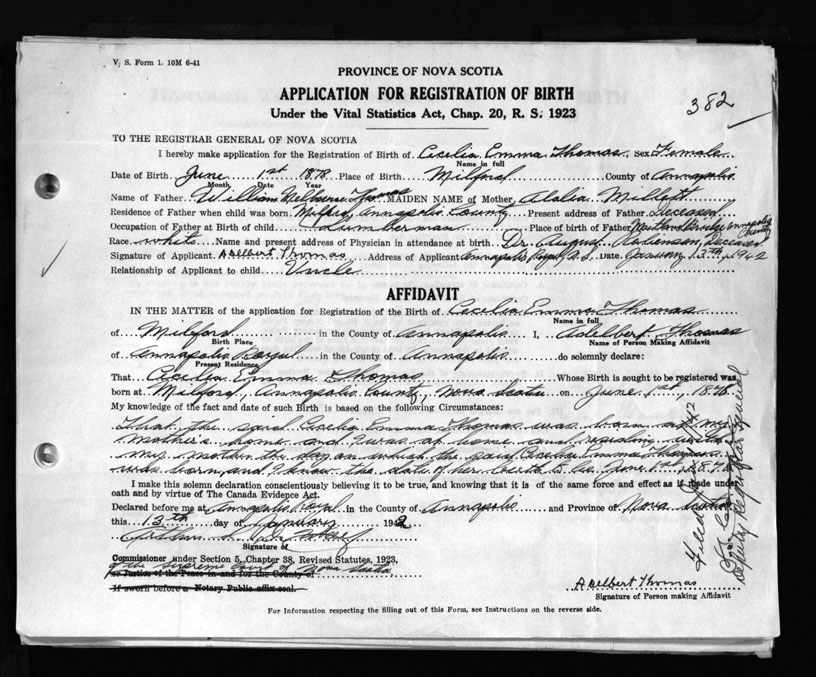 V. S. Form 1. 10M 6-41
PROVINCE OF NOVA SCOTIA
APPLICATION FOR REGISTRATION OF BIRTH
Under the Vital Statistics Act, Chap. 20, R. S. 1923
382
TO THE REGISTRAR GENERAL OF NOVA SCOTIA
I hereby make application for the Registration of Birth of Cecelia Emma Thomas Sex Female
Name in full
Date of Birth June 1st 1878 Place of Birth Milford County of Annapolis
Month Date Year
Name of Father William Melbourne Thomas MAIDEN NAME of Mother Millett
Residence of Father when child was born Milford, Annapolis County Present address of Father Deceased
Occupation of Father at Birth of child Lumberman Place of birth of Father Annapolis County
Race white Name and present address of Physician in attendance at birth Dr. August Robinson, Deceased
Signature of Applicant Adelbert Thomas Address of Applicant Annapolis Royal N.S. Date January 13th, 1942
Relationship of Applicant to child Uncle
AFFIDAVIT
IN THE MATTER of the application for Registration of the Birth of Cecelia Emma Thomas
Name in full
of Milford in the County of Annapolis I, Adelbert Thomas
Birth Place Name of Person Making Affidavit
of Annapolis Royal in the County of Annapolis do solemnly declare:
Present Residence
That Cecelia Emma Thomas Whose Birth is sought to be registered was
born at Milford, Annapolis County, Nova Scotia on June 1st, 1878
My knowledge of the fact and date of such Birth is based on the following Circumstances:
That the said Cecelia Emma Thomas was born at my
mother's home and I was at home and residing with
my mother the day on which the said Cecelia Emma Thomas
was born, and I know the date of her birth to be June 1st, 1878
I make this solemn declaration conscientiously believing it to be true, and knowing that it is of the same force and effect as if made under
oath and by virtue of The Canada Evidence Act.
Declared before me at Annapolis Royal in the County of Annapolis and Province of Nova Scotia
this 13th day of January 1942
Signature of
Commissioner under Section 5, Chapter 38, Revised Statutes, 1923,
of the Supreme Court of Nova Scotia
or Justice of the Peace in and for the County of
If sworn before a Notary Public affix seal.
Adelbert Thomas
Signature of Person making Affidavit
For Information respecting the filling out of this Form, see Instructions on the reverse side.
Filed
Deputy Registrar General